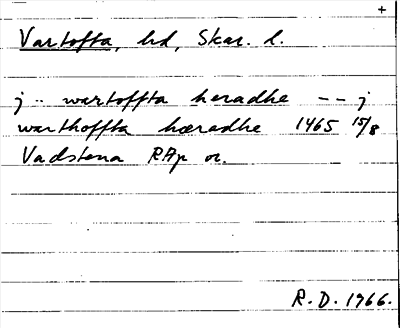 +
Vartofta, hd, Skar. l.
j ·· wartoffta heradhe -- j
warthoffta hæradhe 1465 15/8
Vadstena RAp or.
R. D. 1966.